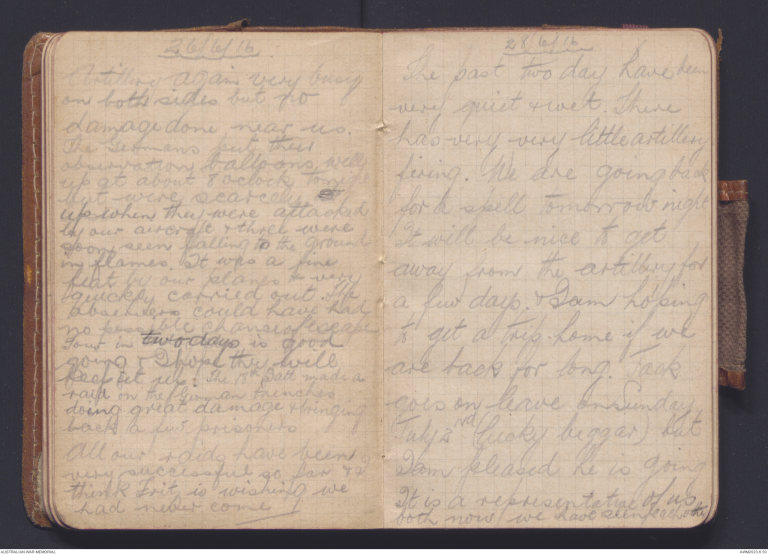 26/6/16
Artillery again very busy
on both sides but no
damage done near us.
The Germans put their
observation balloons well
up at about 8 oclock tonight
but were scarcely
up when they were attacked
by our aircraft & three were
soon seen falling to the ground
in flames. It was a fine
feat by our planes & very
quickly carried out. The
observers could have had
no possible chance of escape
Four in two days is good
going & I hope they will
keep it up. The 18th Batt made a
raid on the German trenches
doing great damage & bringing
back a few prisoners
All our raids have been
very successful so far & I
think Frit is wishing we
had never come
28/6/16
The past two day have been
very quiet & wet. There
has very very little artillery
firing. We are going back
for a spell tomorrow night
It will be nice to get
away from the artillery for
a few days. & I am hoping
to get a trip home if we
are back for long. Jack
goes on leave on Sunday
July 2nd (lucky beggar) but
I am pleased he is going
It is a representative of us
both now we have seen each other
AUSTRALIAN WAR MEMORIAL